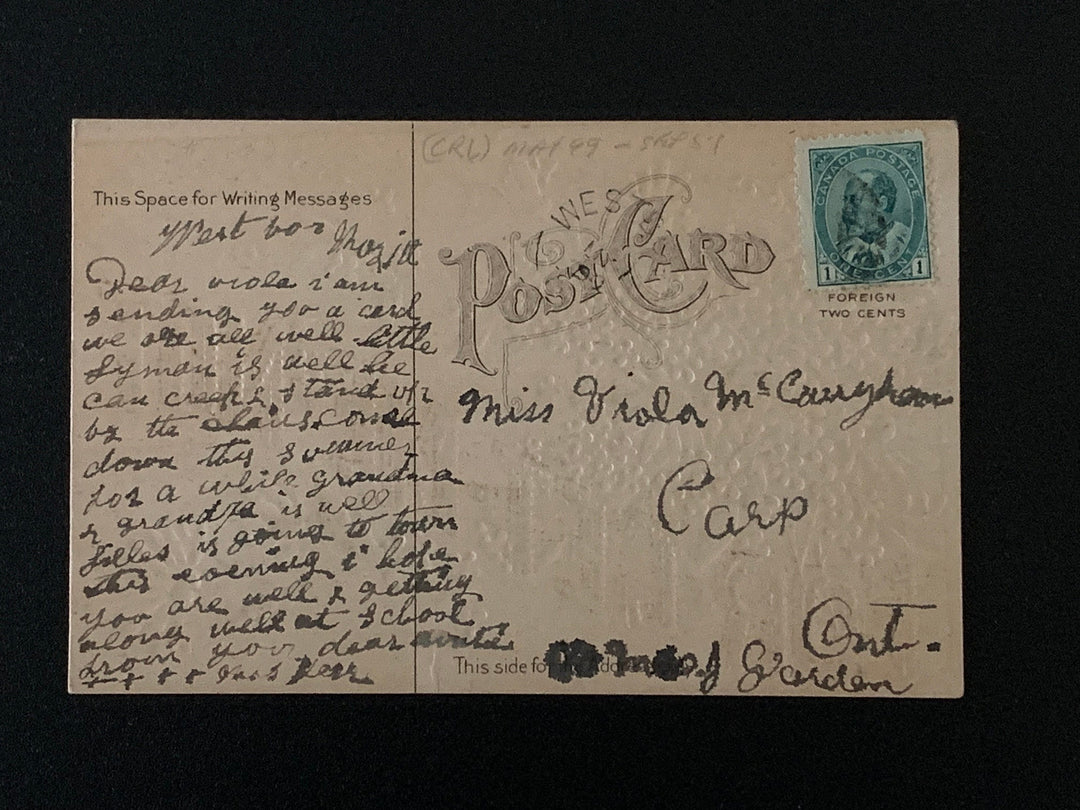 (CRL) MAY 99 -
This Space for Writing Messages
West bor
Dear viola i am
sending you a card
we are all well little
Lyman is well he
can creep & stand up
by the chairs. come
down this summer
for a while grandma
& grandpa is well
is going to town
this evening i hope
you are well & getting
along well at school
from you dear auntie
+ + + +
WES
POST CARD
CANADA POSTAGE
1 ONE CENT 1
FOREIGN
TWO CENTS
Miss Viola
Carp
Ont.
This side for the Address